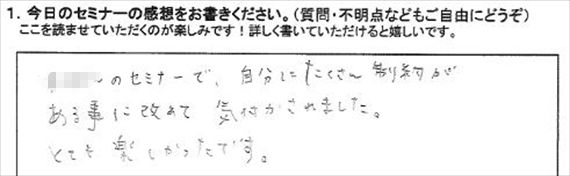 1. 今日のセミナーの感想をお書きください。(質問・不明点などもご自由にどうぞ)
ここを読ませていただくのが楽しみです！詳しく書いていただけると嬉しいです。
のセミナーで、自分にたくさん制約が
ある事に改めて気付かされました。
とても楽しかったです。